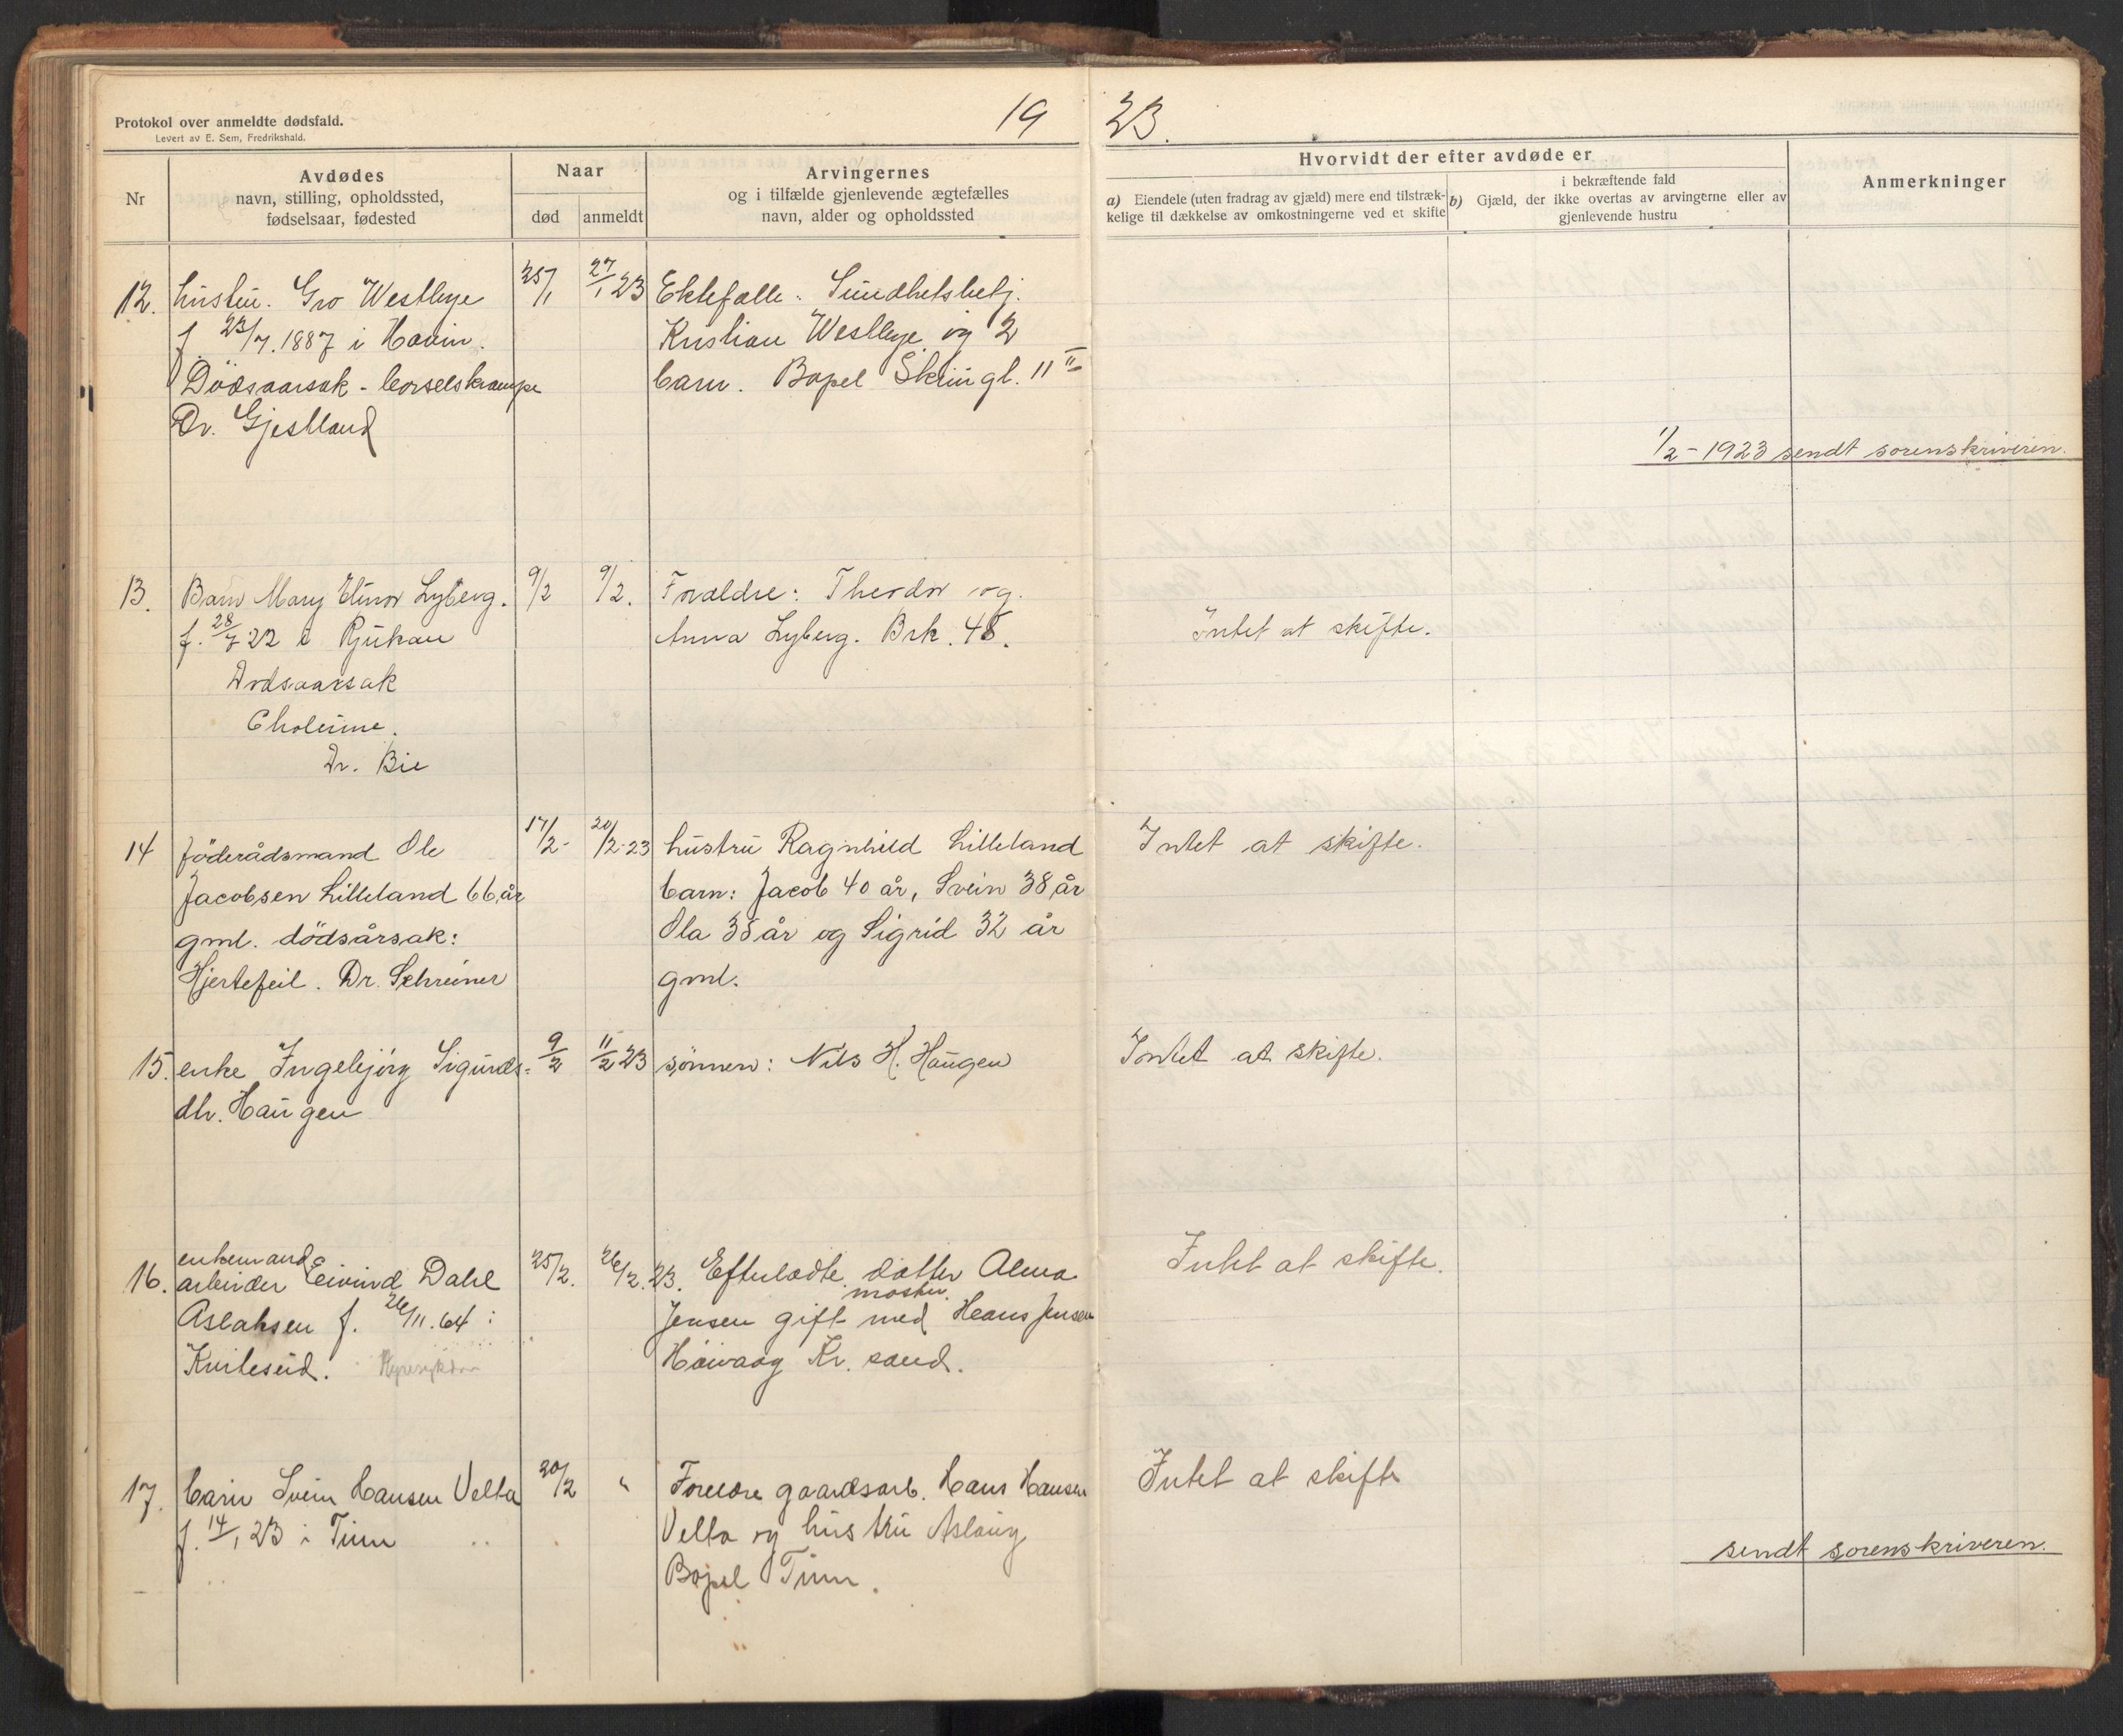 Protokol over anmeldte dødsfald.
Levert av E. Sem, Fredrikshald.
19 23.
Nr
Avdødes
navn, stilling, opholdssted,
fødselsaar, fødested
Naar
død
anmeldt
Arvingernes
og i tilfælde gjenlevende ægtefælles
navn, alder og opholdssted
Hvorvidt der efter avdøde er
a) Eiendele (uten fradrag av gjæld) mere end tilstræk-
kelige til dækkelse av omkostningerne ved et skifte
i bekræftende fald
b) Gjæld, der ikke overtas av arvingerne eller av
gjenlevende hustru
Anmerkninger
12. hustru. Gro Westleye 25/1 27/1 23 Ektefælle. Sundhetsbetj.
f. 23/7. 1887 i Hovin. Kristian Westleye og 2
Dödsaarsak - barselskrampe barn. Bopel Skriugt. 11 II
Dr. Gjestland
1/2 - 1923 sendt sorenskriveren.
13. Barn Mary Elinor Lyberg. 9/2 9/2. Forældre: Theodor og
f. 28/7 22 i Rjukan Anna Lyberg. Brk. 45. Intet at skifte.
Dødsaarsak
Cholerine.
Dr. Bie
14 föderådsmand Ole 17/2 - 20/2-23 hustru Ragnhild Lilleland Intet at skifte.
Jacobsen Lilleland 66 år barn: Jacob 40 år, Svein 38 år
gml. dödsårsak: Ola 35 år og Sigrid 32 år
Hjertefeil. Dr. Schreiner gml.
15. enke Ingebjörg Sigurds- 9/2 11/2 23 sønnen: Nils H. Haugen Intet at skifte.
dtr. Haugen
enkemand
16. arbeider Eivind Dahl 25/2. 26/2. 23. Efterladte datter Alma Intet at skifte.
moster
Aslaksen f. 26/11. 64 i Jensen gift med Hans Jensen
Kviteseid. Høivaag Kr. sand.
17. barn Svein Hansen Velta 20/2 " Foreldre gaardsarb. Hans Hansen Intet at skifte
f. 14/1 23 i Tinn Velta og hustru Aslaug
Bopel Tinn.
sendt sorenskriveren.